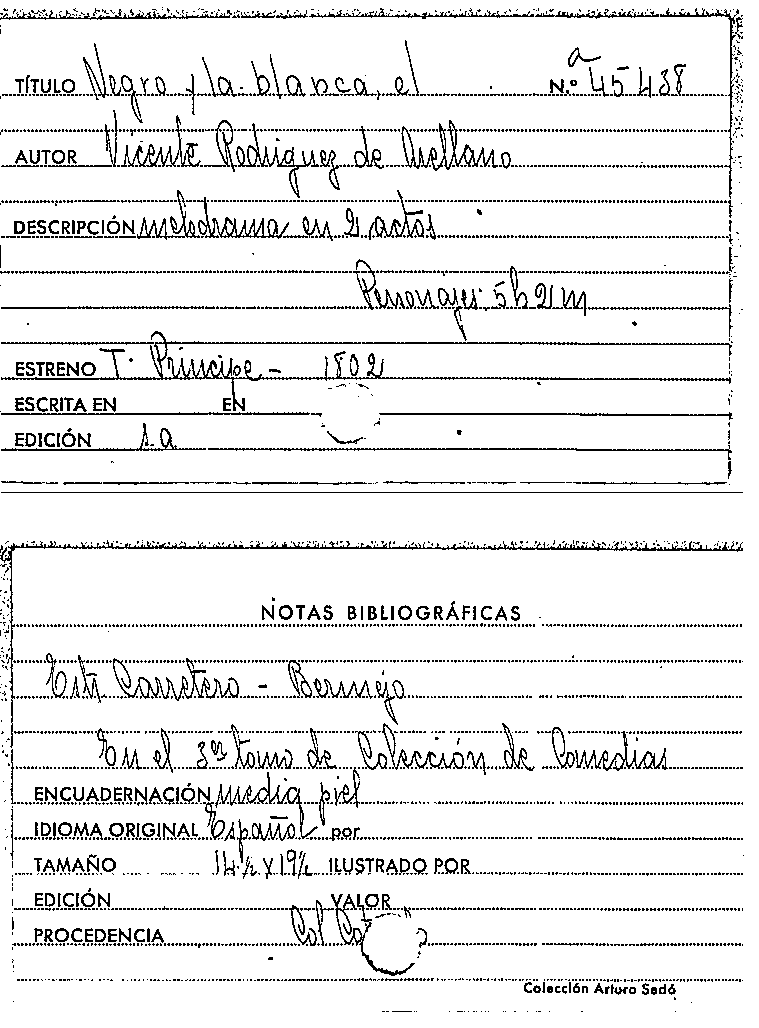 TÍTULO Negro y la blanca, el N.º a 45438
AUTOR Vicente Rodriguez de Arellano
DESCRIPCIÓN melodrama en 2 actos
Personajes 5h 2m
ESTRENO T. Principe - 1802
ESCRITA EN EN
EDICIÓN 1a
NOTAS BIBLIOGRÁFICAS
Estr Carretero - Bermejo
En el 3er tomo de Colección de Comedias
ENCUADERNACIÓN media piel
IDIOMA ORIGINAL Español por
TAMAÑO 14½ x 19½ ILUSTRADO POR
EDICIÓN VALOR
PROCEDENCIA Col
Colección Arturo Sedó